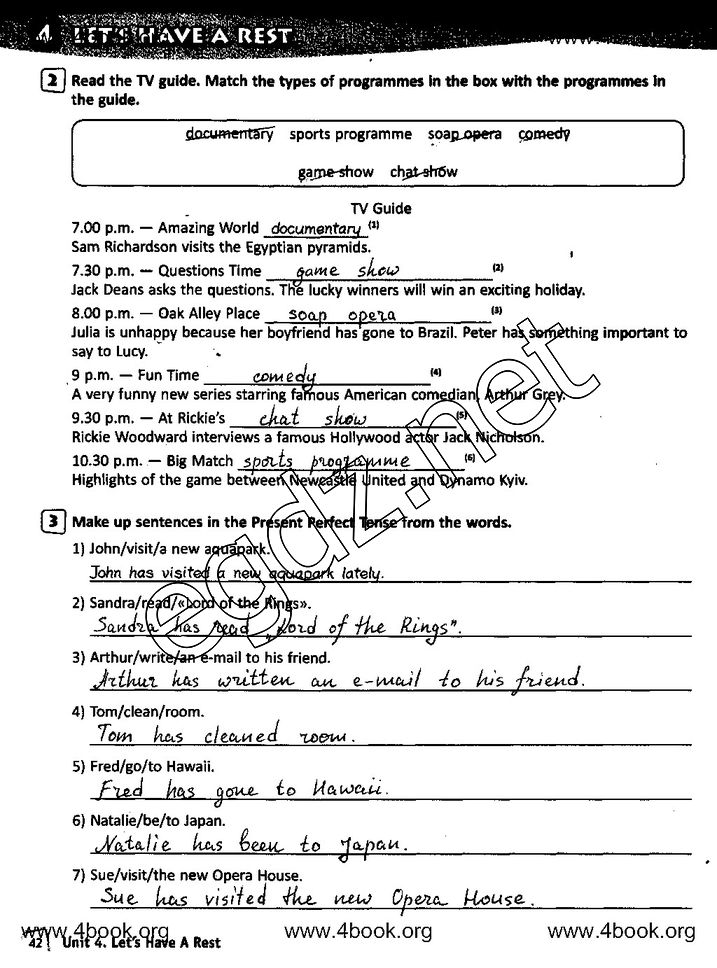 4 LET'S HAVE A REST
2 Read the TV guide. Match the types of programmes in the box with the programmes in
the guide.
documentary sports programme soap opera comedy
game show chat show
TV Guide
7.00 p.m. — Amazing World documentary (1)
Sam Richardson visits the Egyptian pyramids.
7.30 p.m. — Questions Time game show (2)
Jack Deans asks the questions. The lucky winners will win an exciting holiday.
8.00 p.m. — Oak Alley Place soap opera (3)
Julia is unhappy because her boyfriend has gone to Brazil. Peter has something important to
say to Lucy.
9 p.m. — Fun Time comedy (4)
A very funny new series starring famous American comedian, Arthur Grey.
9.30 p.m. — At Rickie's chat show (5)
Rickie Woodward interviews a famous Hollywood actor Jack Nicholson.
10.30 p.m. — Big Match sports programme (6)
Highlights of the game between Newcastle United and Dynamo Kyiv.
3 Make up sentences in the Present Perfect Tense from the words.
1) John/visit/a new aquapark.
John has visited a new aquapark lately.
2) Sandra/read/«Lord of the Rings».
Sandra has read „Lord of the Rings".
3) Arthur/write/an e-mail to his friend.
Arthur has written an e-mail to his friend.
4) Tom/clean/room.
Tom has cleaned room.
5) Fred/go/to Hawaii.
Fred has gone to Hawaii.
6) Natalie/be/to Japan.
Natalie has been to Japan.
7) Sue/visit/the new Opera House.
Sue has visited the new Opera House.
egdz.net
www.4book.org www.4book.org www.4book.org
42 Unit 4. Let's Have A Rest